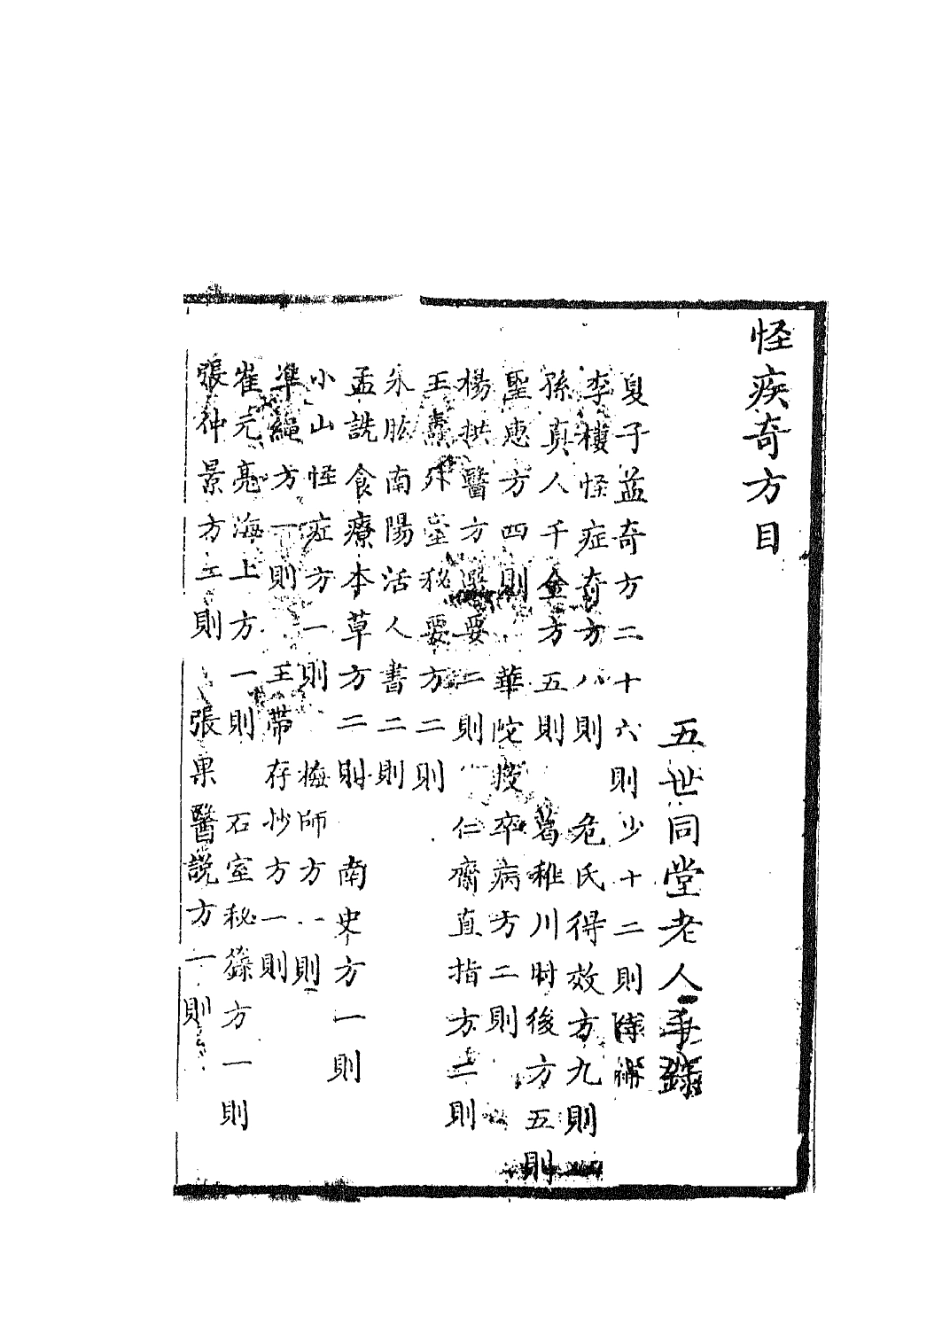 怪疾奇方目
五世同堂老人手錄
夏子益奇方二十六則少十二則待補
李樓怪症奇方八則 危氏得效方九則
孫真人千金方五則 葛稚川肘後方五則
聖惠方四則 華陀疫卒病方二則
楊拱醫方選要二則 仁齋直指方二則
王燾外臺秘要方二則
朱肱南陽活人書二則
孟詵食療本草方二則 南史方一則
小山怪症方一則 梅師方一則
準繩方一則 王蒂存抄方一則
崔元亮海上方一則 石室秘籙方一則
張仲景方二則 張杲醫說方一則